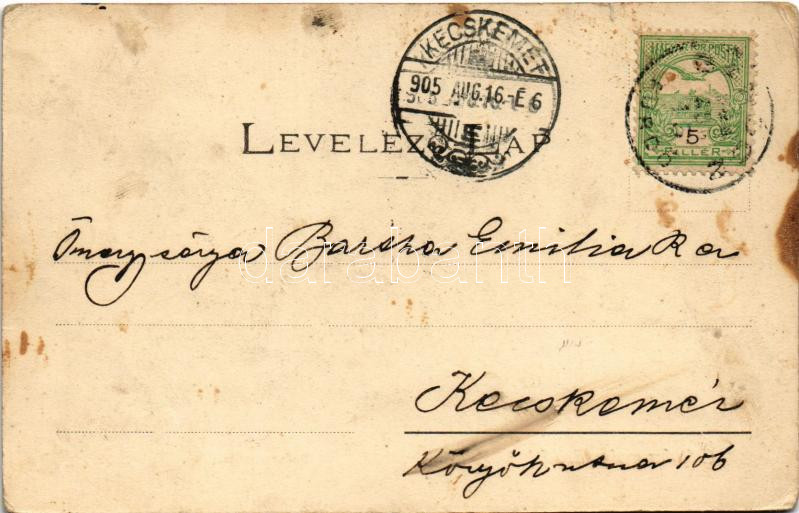 KECSKEMÉT
905 AUG.16.-E 6
MAGYAR KIR. POSTA
5
FILLÉR
LEVELEZŐ-LAP
Önagysága Bartha Emilia R a
darabanth
Kecskemét
106